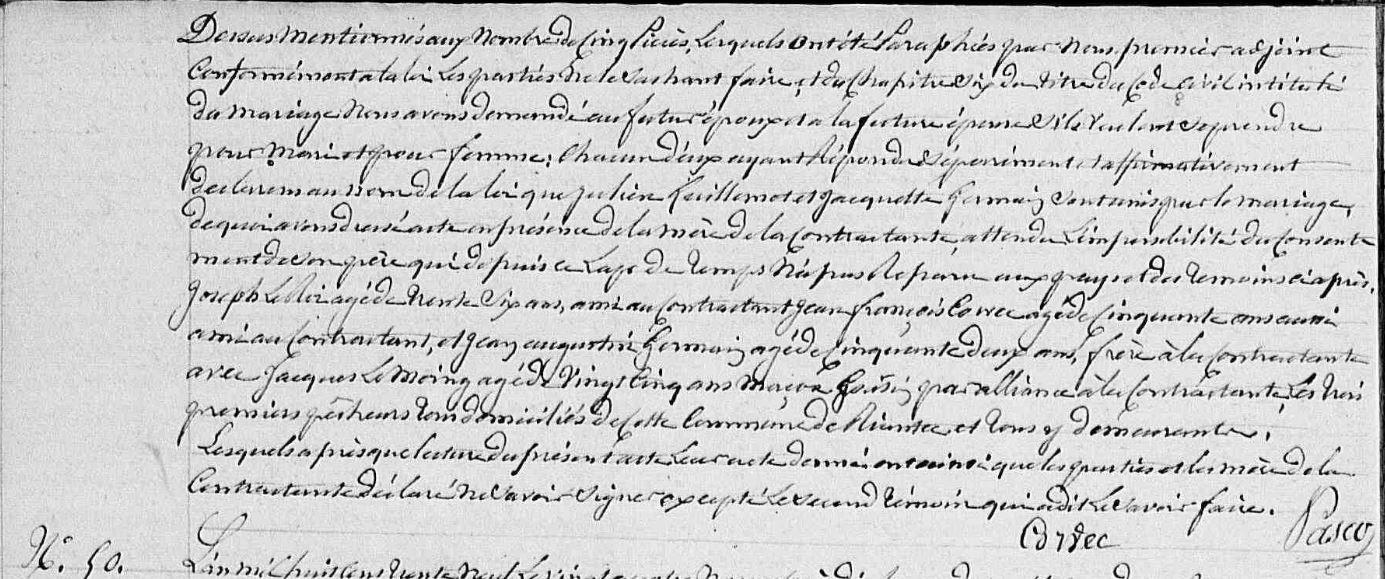 Dessus mentionnés aux Nombre de Cinq Pièces, Lesquels ont été Paraphées par Nous premier adjoint
Conformément a la loi Les parties Ne le Sachant faire, et du Chapitre Six du titre du Code Civil intitulé
du Mariage Nous avons demandé au futur époux et a la future épouse S'ils Veulent Se prendre
pour Mari et pour femme; Chacun d'eux ayant Répondu Séparément et affirmativement
declarons au nom de la loi que Julien Guillemot et Jacquette Germain Sont unis par le mariage,
de quoi avons dressé acte en présence de la mère de la Contractante, attendu L'impossibilité du Consente
ment de Son père qui depuis ce Laps de temps N'a pas Reparu aux pays et des temoins ci après,
Joseph Le Roi agé de trente Six ans, ami au Contractant Jean françois Corvec agé de Cinquante ans aussi
ami au Contractant, et Jean augustin Germain agé de Cinquante deux ans, frère à la Contractante
avec Jacques Le Moing agé de Vingt Cinq ans Maçon Cousin par alliance à la Contractante, Les trois
premiers pêcheurs tous domiciliés de Cette Commune de Riantec et tous y demeurants.
Lesquels après que lecture du présent acte Leur a ete donné ont ainsi que les parties et les mère de la
Contractante déclaré Ne Savoir Signer excepté Le Second témoin qui a dit Le Savoir faire.
Corvec Pasco
N.° 50. L'an mil huit Cent trente Neuf Le vingt